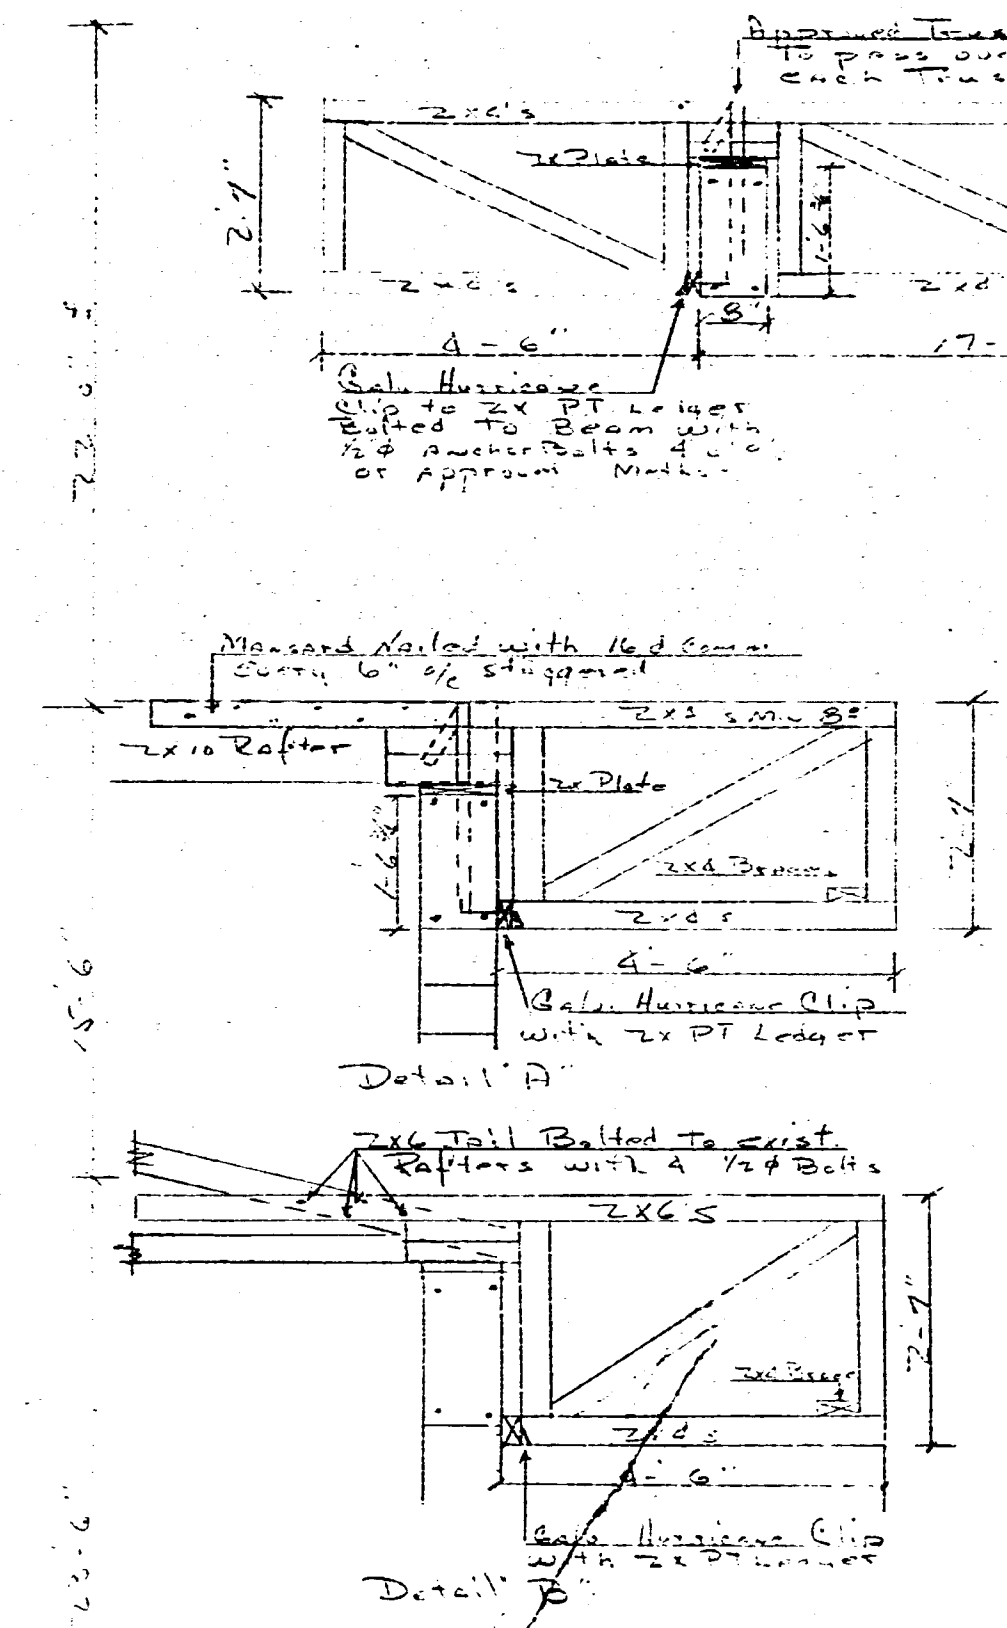 Approved
To pass
each
2x4's
2x Plate
2'-7"
1-6 3/4"
2x4's
2x4
8"
4-6"
17-
22'0"
Galv. Hurricane
Clip to 2x PT Ledger
Bolted To Beam with
1/2 Ø Anchor Bolts 4'
or Approved
Mansard Nailed with 16d
Every 6" o/c staggered
2x10 Rafter
2x Plate
2-7
1-6 3/4"
2x4 Brace
2x4's
4'-6"
15-6"
Galv. Hurricane Clip
with 2x PT Ledger
Detail "A"
2x6 Tail Bolted To exist.
Rafters with 4 1/2 Ø Bolts
2x6's
2-7"
2x4 Brace
2x4's
4'-6"
Galv. Hurricane Clip
with 2x PT Ledger
Detail "B"